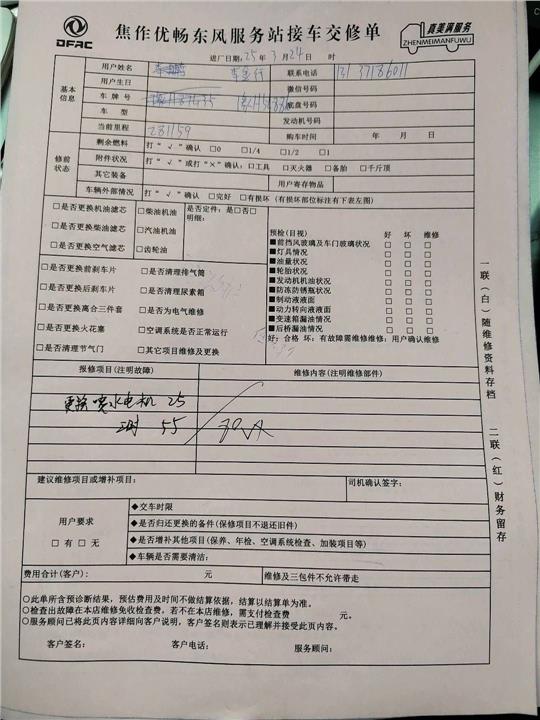 DFAC
焦作优畅东风服务站接车交修单
真美满服务
ZHENMEIMANFUWU
进厂日期：25年 3月24日 时
基本信息
用户姓名 联系电话 13137186011
用户生日 微信号码
车牌号 底盘号码
车型 发动机号码
当前里程 281159 购车时间 年 月 日
修前状态
剩余燃料 打“√”确认 □0 □1/4 □1/2 □1
附件状况 打“√”或打“×”确认：□工具 □灭火器 □备胎 □千斤顶
其它装备 用户寄存物品
车辆外部情况 打“√”确认 □完好 □有损坏（有损坏部位标注有下表左图）
□是否更换机油滤芯 □柴油机油 是否定件：是□否□
明细：
□是否更换柴油滤芯 □汽油机油
□是否更换空气滤芯 □齿轮油
□是否更换前刹车片 □是否清理排气筒
□是否更换后刹车片 □是否清理尿素箱
□是否更换离合三件套 □是否为电气维修
□是否更换火花塞 □空调系统是否正常运行
□是否清理节气门 □其它项目维修及更换
预检(目视) 好 坏 维修
■前挡风玻璃及车门玻璃状况 □ □ □
■灯具情况 □ □ □
■油量状况 □ □ □
■轮胎状况 □ □ □
■发动机机油状况 □ □ □
■防冻防锈瓶状况 □ □ □
■制动液液面 □ □ □
■动力转向液液面 □ □ □
■变速箱漏油情况 □ □ □
■后桥漏油情况 □ □ □
好：合格 坏：有故障需维修维修：用户确认维修
报修项目(注明故障) 维修内容(注明维修部件)
更换喷水电机 25
工时 55
建议维修项目或增补项目： 司机确认签字：
用户要求
□有□无
◆交车时限
◆是否归还更换的备件(保修项目不退还旧件)
◆是否增补其他项目(保养、年检、空调系统检查、加装项目等)
◆车辆是否需要清洁：
费用合计(客户)： 元 维修及三包件不允许带走
○此单所含预诊断结果，预估费用及时间不做结算依据，结算以结算单为准。
○检查出故障在本店维修免收检查费。若不在本店维修，需支付检查费 元。
○服务顾问已将此页内容详细向客户说明，客户签名则表示已理解并接受此页内容。
客户签名： 客户电话： 服务顾问：
一联(白)随维修资料存档
二联(红)财务留存